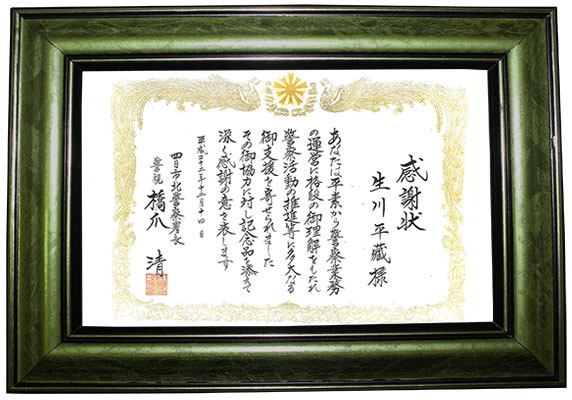 感謝状
生川平蔵様
あなたは平素から警察業務
の運営に格段の御理解をもたれ
警察活動の推進等に多大なる
御支援を寄せられました
その御協力に対し記念品を添えて
深く感謝の意を表します
平成二十二年十二月十四日
四日市北警察署長
警視 橋爪 清